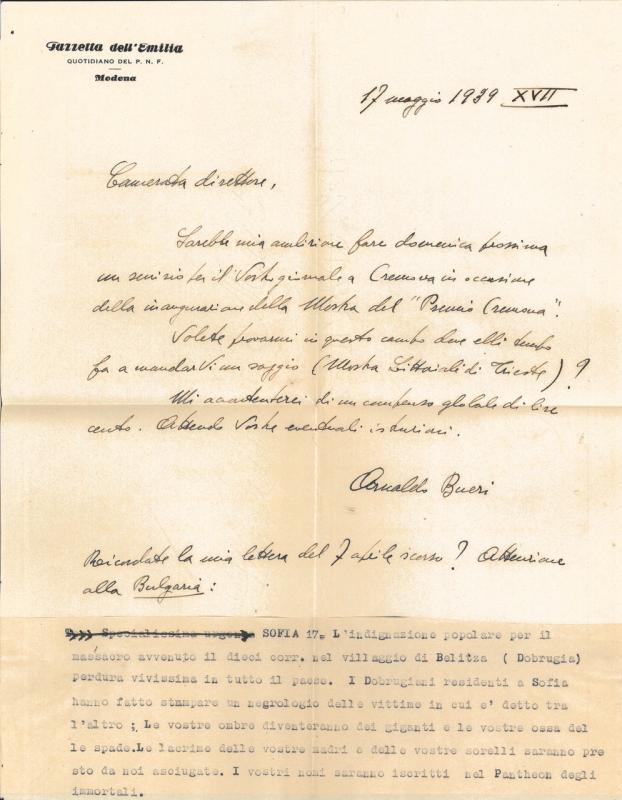 Gazzetta dell'Emilia
QUOTIDIANO DEL P. N. F.
Modena
17 maggio 1939 XVII
Camerata direttore,
Sarebbe mia ambizione fare domenica prossima
un servizio per il Vostro giornale a Cremona in occasione
della inaugurazione della Mostra del "Premio Cremona".
Volete provarmi in questo campo dove ebbi tempo
fa a mandarVi un saggio (Mostra Littoriali di Trieste)?
Mi accontenterei di un compenso globale di lire
cento. Attendo Vostre eventuali istruzioni.
Arnaldo Bueri
Ricordate la mia lettera del 7 aprile scorso? Attenzione
alla Bulgaria:
Specialissima urgente SOFIA 17= L'indignazione popolare per il
massacro avvenuto il dieci corr. nel villaggio di Belitza ( Dobrugia)
perdura vivissima in tutto il paese. I Dobrugiani residenti a Sofia
hanno fatto stampare un negrologio delle vittime in cui e' detto tra
l'altro ; Le vostre ombre diventeranno dei giganti e le vostre ossa del
le spade.Le lacrime delle vostre madri e delle vostre sorelli saranno pre
sto da noi asciugate. I vostri nomi saranno iscritti nel Pantheon degli
immortali.